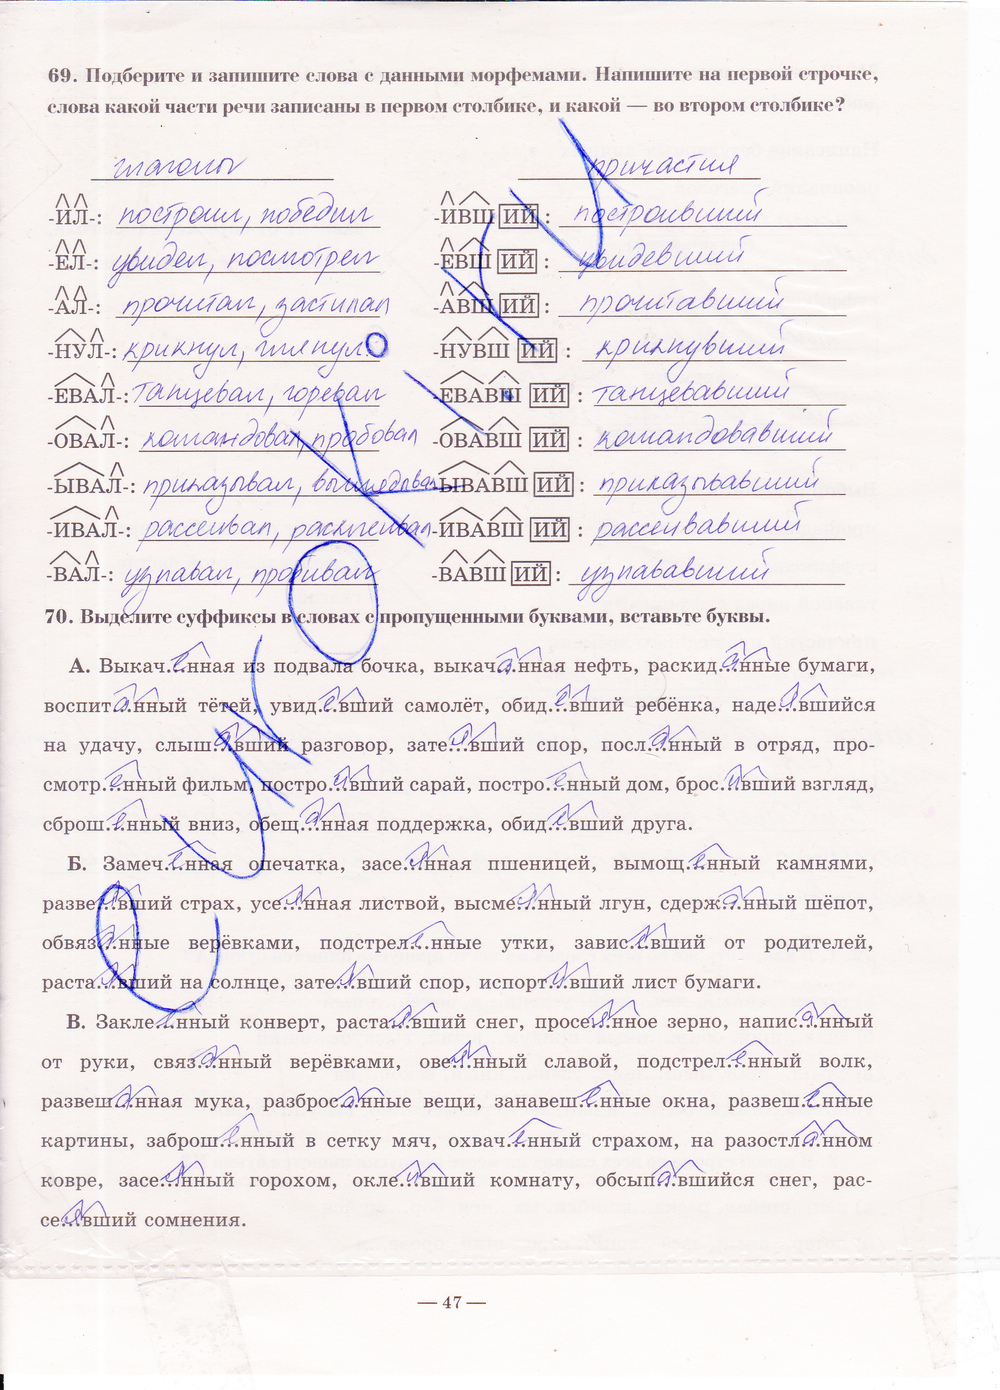 69. Подберите и запишите слова с данными морфемами. Напишите на первой строчке,
слова какой части речи записаны в первом столбике, и какой — во втором столбике?
глаголы причастия
-ИЛ-: построил, победил -ИВШ ИЙ : построивший
-ЕЛ-: увидел, посмотрел -ЕВШ ИЙ : увидевший
-АЛ-: прочитал, застилал -АВШ ИЙ : прочитавший
-НУЛ-: крикнул, глянул -НУВШ ИЙ : крикнувший
-ЕВАЛ-: танцевал, горевал -ЕВАВШ ИЙ : танцевавший
-ОВАЛ-: командовал, пробовал -ОВАВШ ИЙ : командовавший
-ЫВАЛ-: приказывал, выглядывал -ЫВАВШ ИЙ : приказывавший
-ИВАЛ-: рассеивал, расклеивал -ИВАВШ ИЙ : рассеивавший
-ВАЛ-: узнавал, пробивал -ВАВШ ИЙ : узнававший
70. Выделите суффиксы в словах с пропущенными буквами, вставьте буквы.
А. Выкач...енная из подвала бочка, выкач...анная нефть, раскид...анные бумаги,
воспит...анный тётей, увид...евший самолёт, обид...евший ребёнка, наде...явшийся
на удачу, слыш...авший разговор, зате...явший спор, посл...анный в отряд, про-
смотр...енный фильм, постро...ивший сарай, постро...енный дом, брос...ивший взгляд,
сброш...енный вниз, обещ...анная поддержка, обид...евший друга.
Б. Замеч...енная опечатка, засе...янная пшеницей, вымощ...енный камнями,
разве...явший страх, усе...янная листвой, высме...янный лгун, сдерж...анный шёпот,
обвяз...анные верёвками, подстрел...енные утки, завис...евший от родителей,
раста...явший на солнце, зате...явший спор, испорт...ивший лист бумаги.
В. Закле...енный конверт, раста...явший снег, просе...янное зерно, напис...анный
от руки, связ...анный верёвками, ове...янный славой, подстрел...енный волк,
развеш...анная мука, разброс...анные вещи, занавеш...енные окна, развеш...енные
картины, заброш...енный в сетку мяч, охвач...енный страхом, на разостл...анном
ковре, засе...янный горохом, окле...ивший комнату, обсып...авшийся снег, рас-
се...явший сомнения.
— 47 —